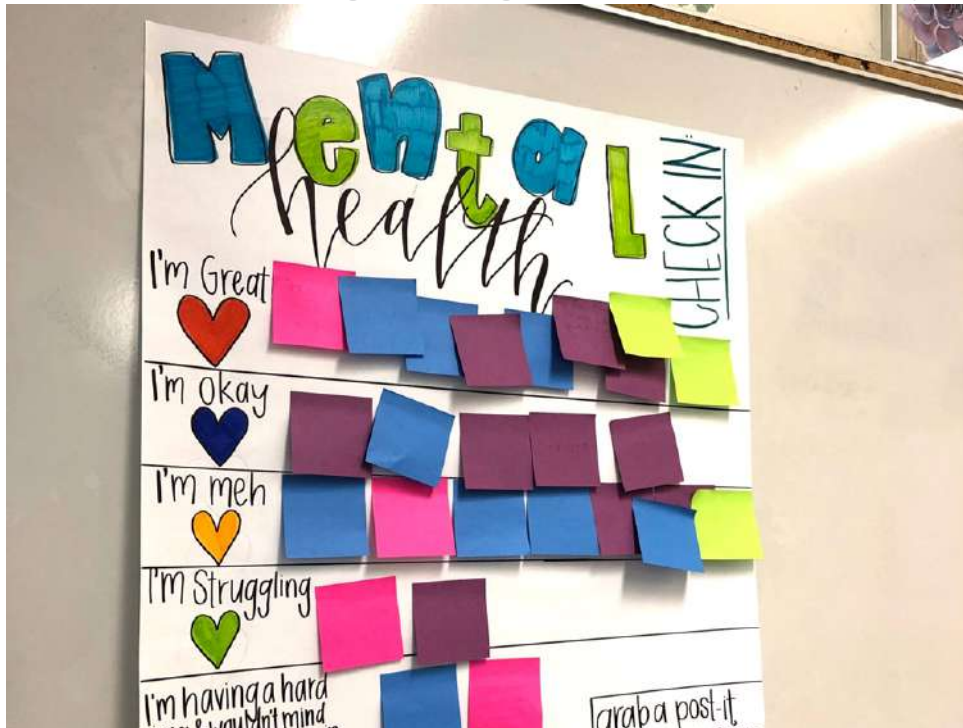 Mental
health
CHECK IN:
I'm Great
I'm okay
I'm meh
I'm Struggling
I'm having a hard
wouldn't mind
grab a post-it